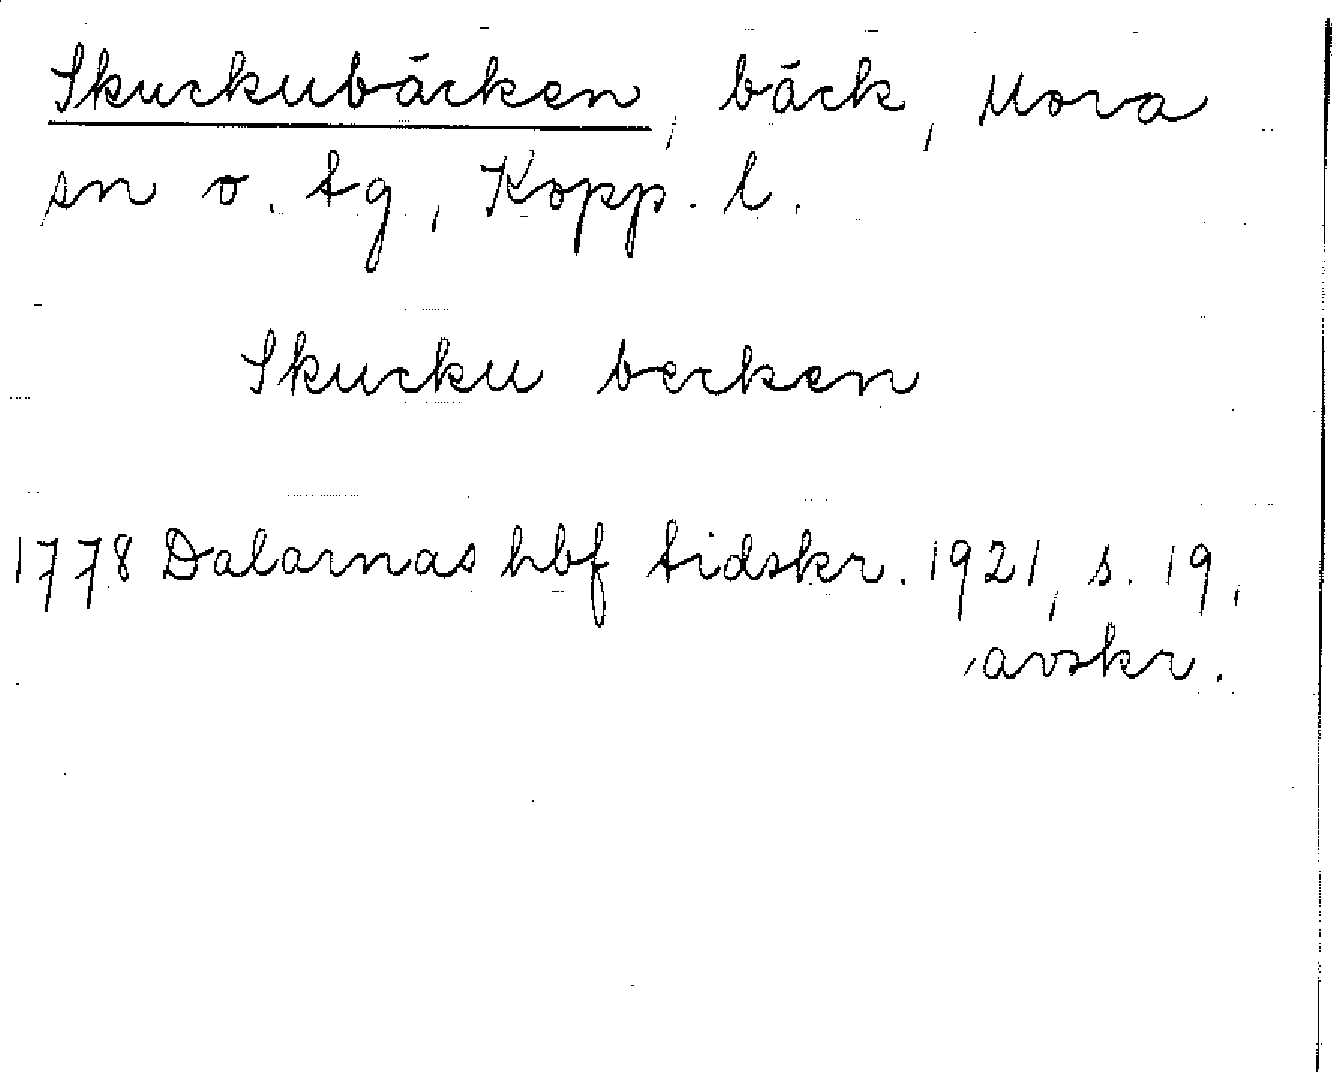 Skuckubäcken, bäck, Mora
sn o. tg, Kopp. l.
Skucku becken
1778 Dalarnas hbf tidskr. 1921, s. 19,
avskr.